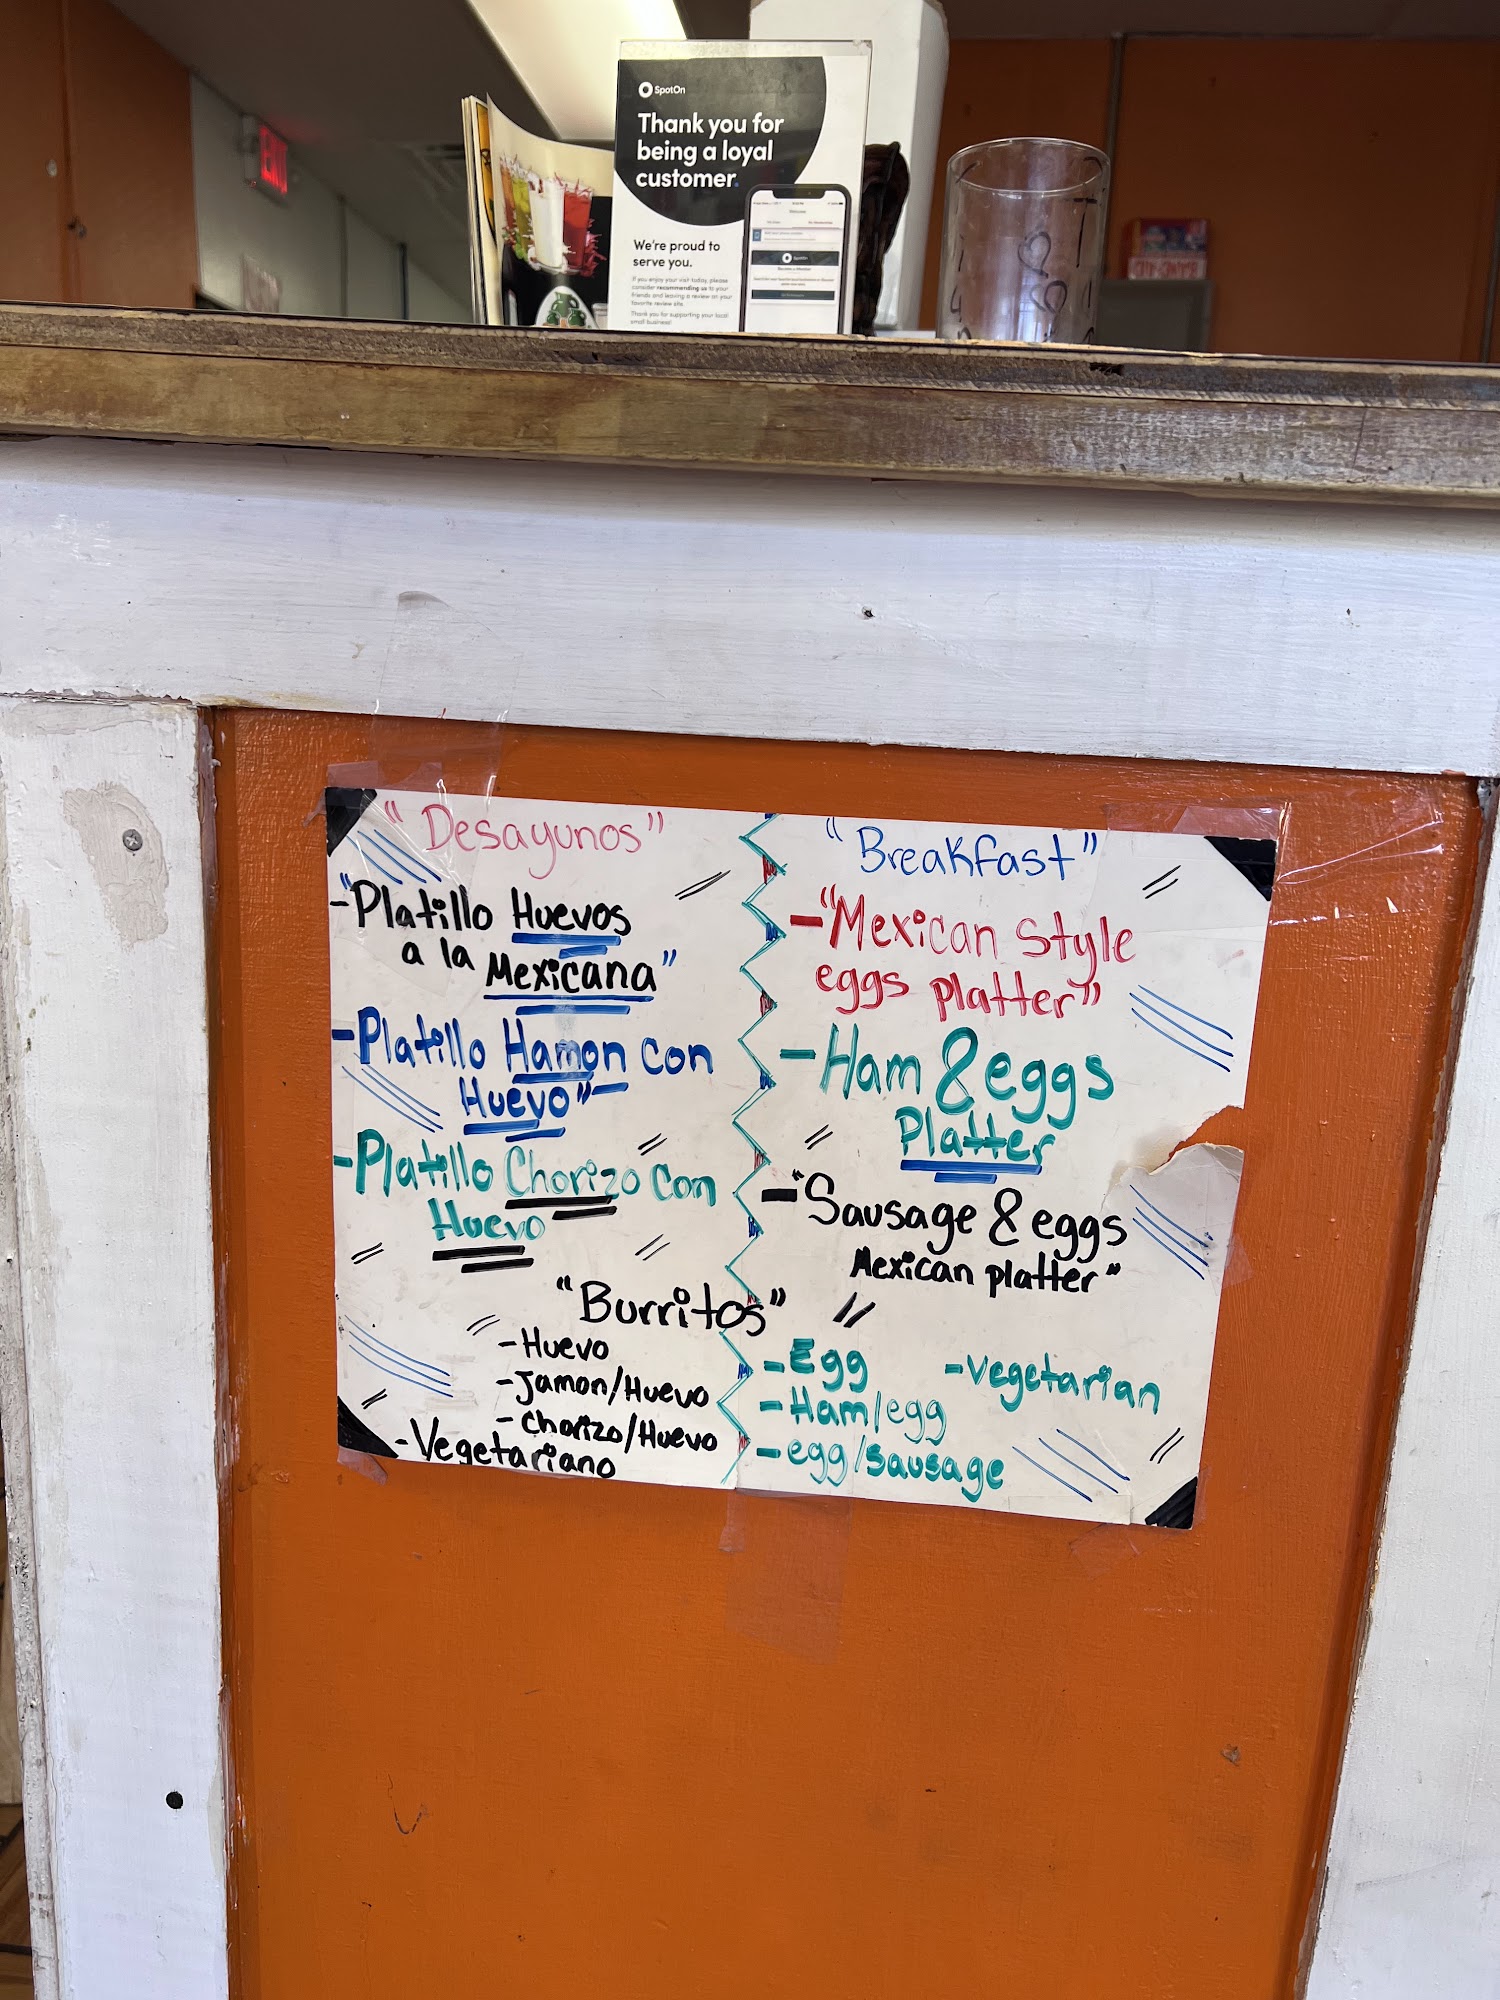 EXIT
SpotOn
Thank you for
being a loyal
customer.
We're proud to
serve you.
If you enjoy your visit today, please
consider recommending us to your
friends and leaving a review on your
favorite review site.
Thank you for supporting your local
small business!
"Desayunos"
-"Platillo Huevos
a la Mexicana"
-Platillo Hamon con
Huevo"-
-Platillo Chorizo con
Huevo
"Breakfast"
-"Mexican Style
eggs platter"
-Ham & eggs
Platter
-"Sausage & eggs
Mexican platter"
"Burritos"
-Huevo
-Jamon/Huevo
-Chorizo/Huevo
-Vegetariano
-Egg
-Ham/egg
-egg/sausage
-Vegetarian